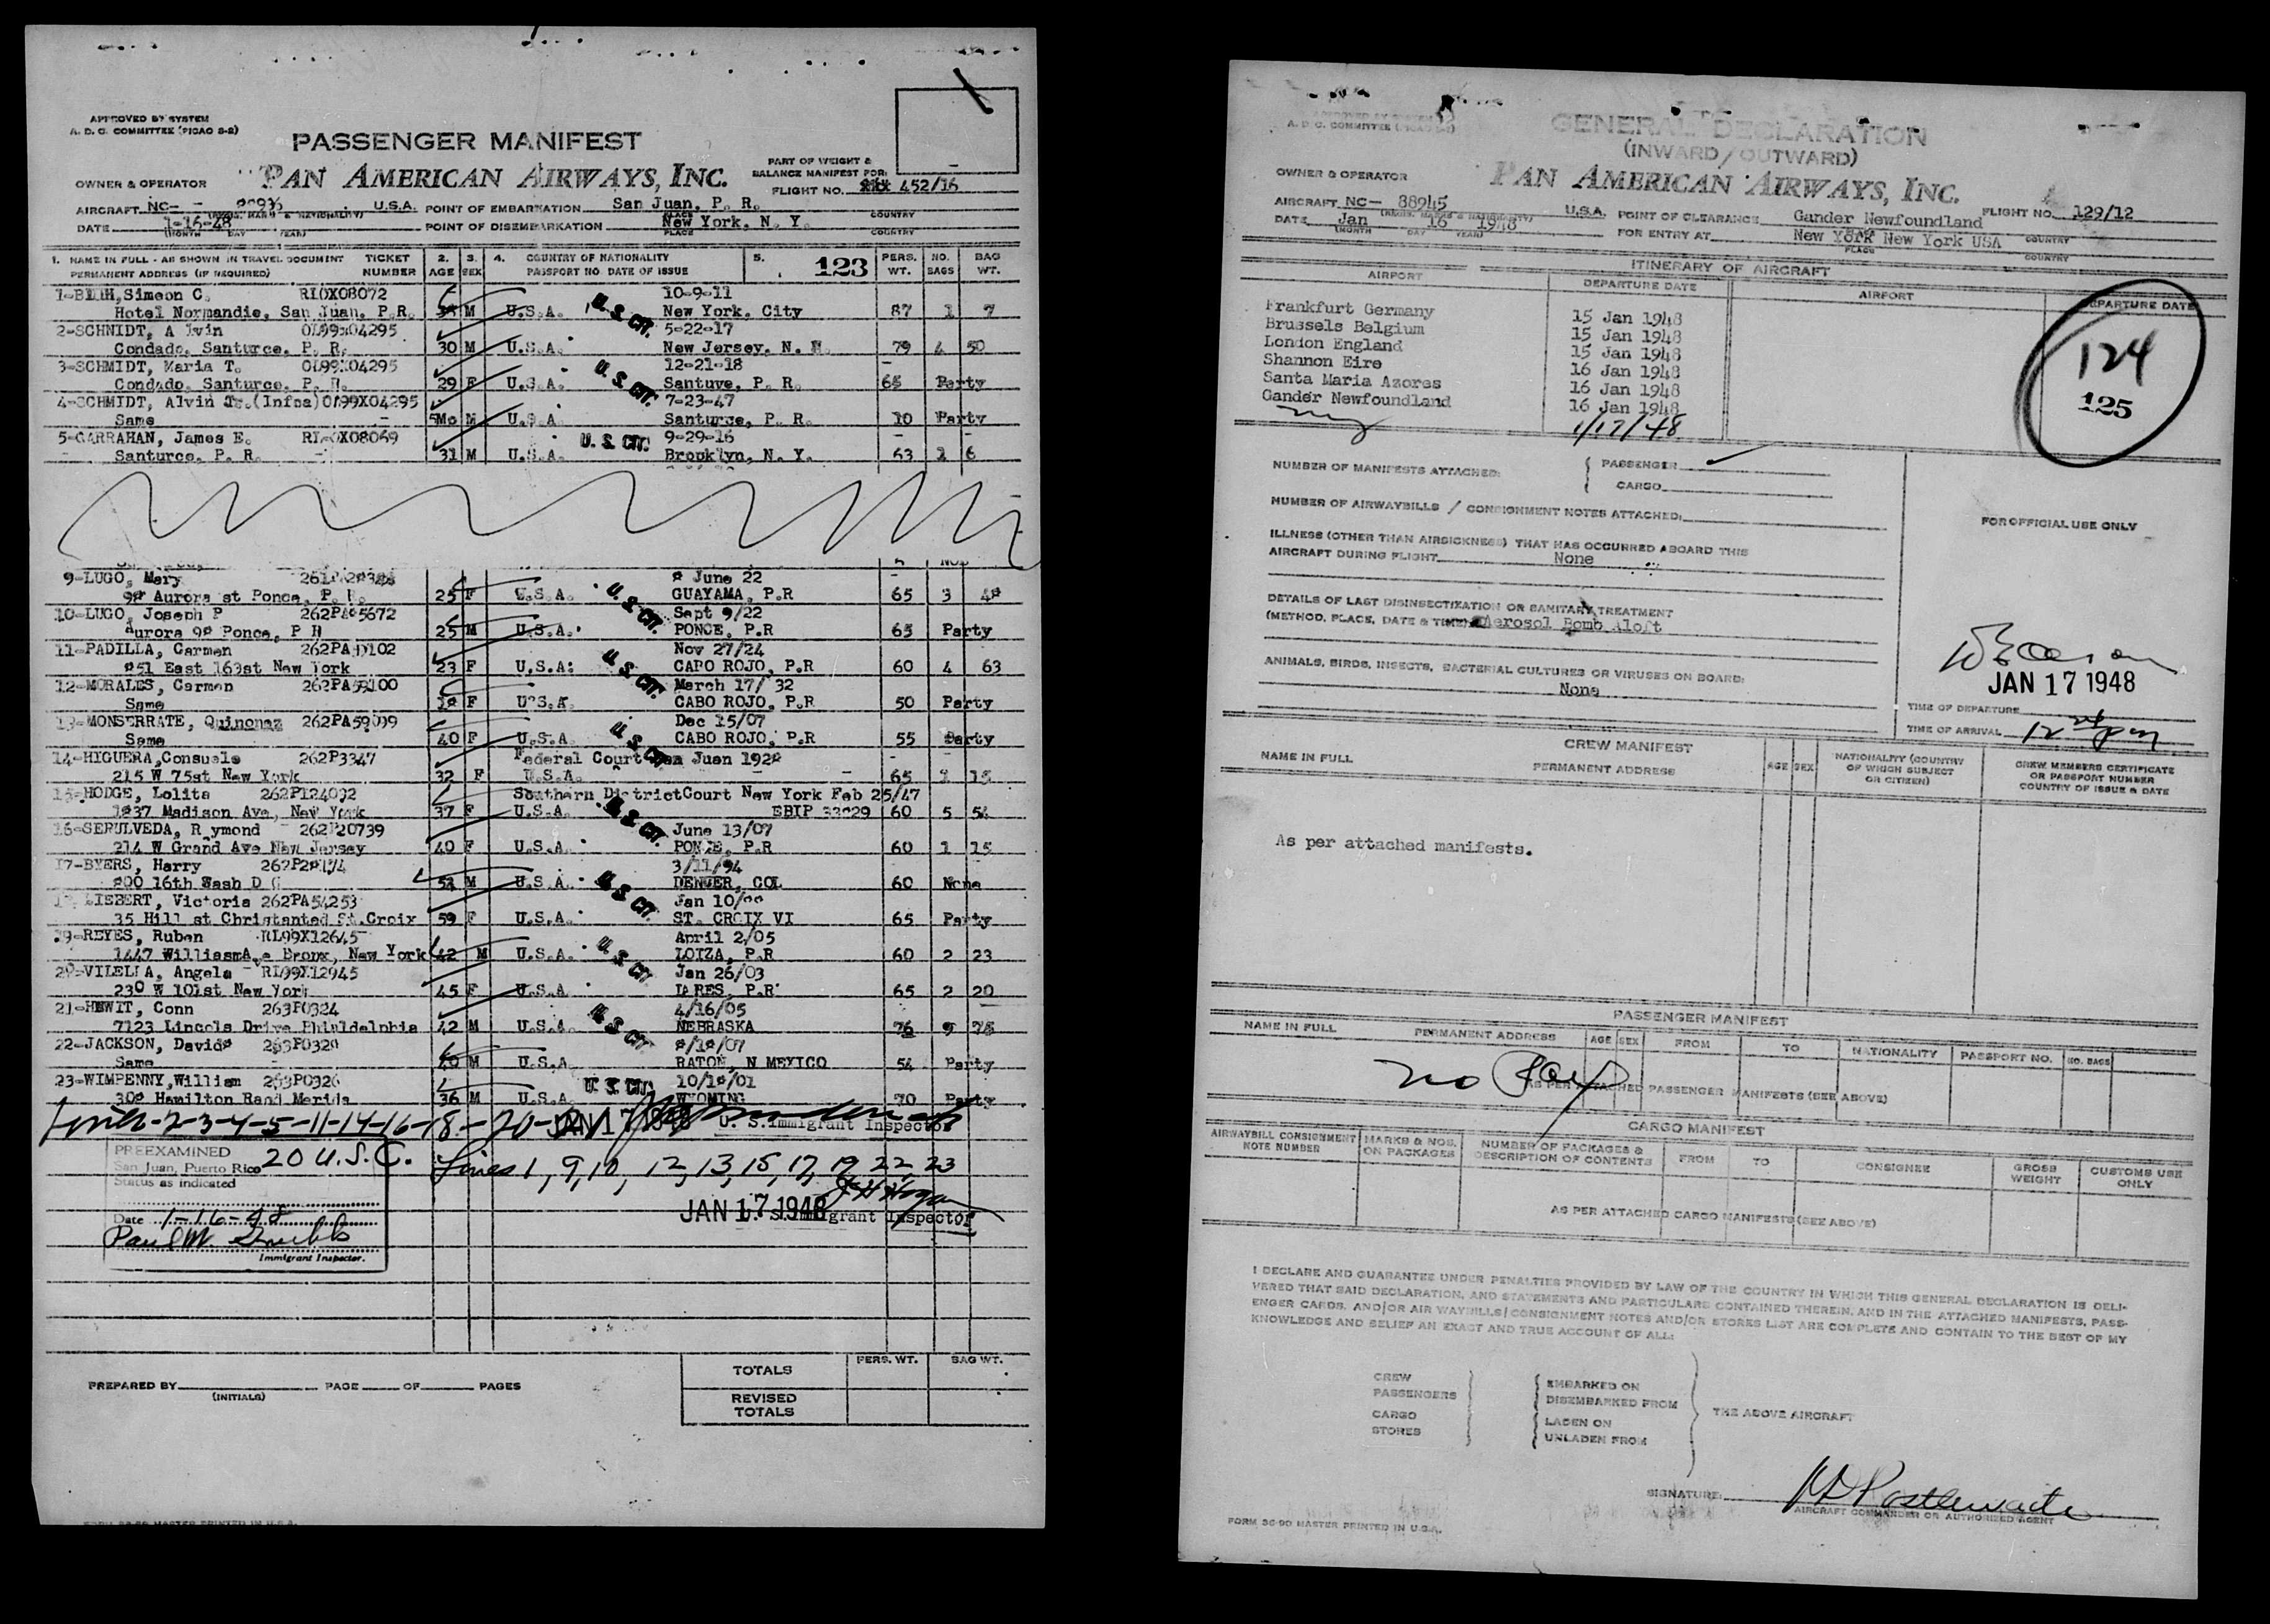 APPROVED BY SYSTEM
A. D. C. COMMITTEE (PICAO S-2)
PASSENGER MANIFEST
PAN AMERICAN AIRWAYS, INC.
PART OF WEIGHT &
BALANCE MANIFEST FOR:
OWNER & OPERATOR
FLIGHT NO. 452/16
AIRCRAFT NC- U.S.A. POINT OF EMBARKATION San Juan, P. R.
DATE 1-16-48 POINT OF DISEMBARKATION New York, N. Y.
(MONTH DAY YEAR) PLACE COUNTRY
1. NAME IN FULL - AS SHOWN IN TRAVEL DOCUMENT TICKET 2. 3. 4. COUNTRY OF NATIONALITY 5. 123 PERS. NO. BAG
PERMANENT ADDRESS (IF REQUIRED) NUMBER AGE SEX PASSPORT NO DATE OF ISSUE WT. BAGS WT.
Simeon C. RL0X08072 10-9-11
Hotel Normandie, San Juan, P.R. M U.S.A. U.S. CIT. New York, City 87 1 7
2-SCHNIDT, A lvin 0199X04295 5-22-17
Condado, Santurce, P. R. 30 M U.S.A. New Jersey, N. 79 4 50
3-SCHMIDT, Maria T. 0199X04295 12-21-18
Condado, Santurce, P. R. 29 F U.S.A. U.S. CIT. Santuve, P. R. 65 Party
4-SCHMIDT, Alvin Jr.(Infna) 0199X04295 7-23-47
Same 5Mo M U.S.A. Santurce, P. R. 10 Party
5-GARRAHAN, James E. RL0X08069 U.S. CIT. 9-29-16
Santurce, P. R. 31 M U.S.A. Brooklyn, N. Y. 63 1 6
9-LUGO, Mary June 22
Aurora st Ponce, P. R. 25 F U.S.A. U.S. CIT. GUAYAMA, P.R 65 3
10-LUGO, Joseph P Sept 9/22
Aurora Ponce, P R 25 M U.S.A. PONCE, P.R 65 Party
11-PADILLA, Carmen Nov 27/24
East 163st New York 23 F U.S.A: U.S. CIT. CABO ROJO, P.R 60 4 63
12-MORALES, Carmen 262PA59100 March 17/ 32
Same F U.S.A. CABO ROJO, P.R 50 Party
13-MONSERRATE, Quinonez 262PA59099 Dec 15/07
Same 40 F U.S.A U.S. CIT. CABO ROJO, P.R 55 Party
14-HIGUERA,Consuelo 262P3347 Federal Court San Juan
215 W 75st New York 32 F U.S.A. 65 1 15
15-HODGE, Lolita 262P124092 Southern DistrictCourt New York Feb 25/47
Madison Ave, New York 37 F U.S.A. U.S. CIT. EBIP 60 5 54
16-SEPULVEDA, R ymond 262P20739 June 13/07
214 W Grand Ave New Jersey 40 F U.S.A. PONCE, P.R 60 1 15
17-BYERS, Harry 3/11/94
16th Wash D C M U.S.A. U.S. CIT. DENVER, COL 60 None
Victoria 262PA54253 Jan
35 Hill st Christanted St.Croix 59 F U.S.A. ST. CROIX VI 65 Party
19-REYES, Ruben RL99X12645 April 2/05
1447 WilliasmA,e Bronx, New York 42 M U.S.A. U.S. CIT. LOIZA, P.R 60 2 23
20-VILELLA, Angela RL99X12945 Jan 26/03
230 W 101st New York 45 F U.S.A LARES, P.R 65 2 20
21-HEWIT, Conn 263P0324 4/16/05
7123 Lincols Drive Phialdelphia 42 M U.S.A. U.S. CIT. NEBRASKA 76
22-JACKSON, David
Same 40 M U.S.A RATON, N MEXICO 54 Party
23-WIMPENNY,William 263P0326 U.S. CIT.
Hamilton Rand Merids 36 M U.S.A. WYOMING 70 Party
Lines-2-3-4-5-11-14-16-18-20-21 JAN 17 1948 U. S. Immigrant Inspector
PREEXAMINED 20 U.S.C. Lines 1, 9, 10, 12, 13, 15, 17, 19, 22, 23
San Juan, Puerto Rico
Status as indicated
JAN 17 1948 U. S. Immigrant Inspector
Date 1-16-48
Immigrant Inspector.
TOTALS PERS. WT. BAG WT.
PREPARED BY PAGE OF PAGES
(INITIALS)
REVISED
TOTALS
APPROVED BY SYSTEM
A. D. C. COMMITTEE (PICAO S-2)
GENERAL DECLARATION
(INWARD / OUTWARD)
OWNER & OPERATOR
PAN AMERICAN AIRWAYS, INC.
AIRCRAFT NC- 88945 U.S.A. POINT OF CLEARANCE Gander Newfoundland FLIGHT NO. 129/12
DATE Jan 16 1948 FOR ENTRY AT New York New York USA
(MONTH DAY YEAR) PLACE COUNTRY
ITINERARY OF AIRCRAFT
AIRPORT DEPARTURE DATE AIRPORT DEPARTURE DATE
Frankfurt Germany 15 Jan 1948
Brussels Belgium 15 Jan 1948
London England 15 Jan 1948
Shannon Eire 16 Jan 1948
Santa Maria Azores 16 Jan 1948
Gander Newfoundland 16 Jan 1948
NY 1/17/48
124
125
NUMBER OF MANIFESTS ATTACHED: PASSENGER
CARGO
NUMBER OF AIRWAYBILLS / CONSIGNMENT NOTES ATTACHED:
FOR OFFICIAL USE ONLY
ILLNESS (OTHER THAN AIRSICKNESS) THAT HAS OCCURRED ABOARD THIS
AIRCRAFT DURING FLIGHT None
DETAILS OF LAST DISINSECTIZATION OR SANITARY TREATMENT
(METHOD, PLACE, DATE & TIME) Aerosol Bomb Aloft
ANIMALS, BIRDS, INSECTS, BACTERIAL CULTURES OR VIRUSES ON BOARD:
None
JAN 17 1948
TIME OF DEPARTURE
TIME OF ARRIVAL
CREW MANIFEST
NAME IN FULL PERMANENT ADDRESS AGE SEX NATIONALITY (COUNTRY OF WHICH SUBJECT OR CITIZEN) CREW MEMBERS CERTIFICATE OR PASSPORT NUMBER COUNTRY OF ISSUE & DATE
As per attached manifests.
PASSENGER MANIFEST
NAME IN FULL PERMANENT ADDRESS AGE SEX FROM TO NATIONALITY PASSPORT NO. NO. BAGS
no
AS PER ATTACHED PASSENGER MANIFESTS (SEE ABOVE)
CARGO MANIFEST
AIRWAYBILL CONSIGNMENT NOTE NUMBER MARKS & NOS. ON PACKAGES NUMBER OF PACKAGES & DESCRIPTION OF CONTENTS FROM TO CONSIGNEE GROSS WEIGHT CUSTOMS USE ONLY
AS PER ATTACHED CARGO MANIFESTS (SEE ABOVE)
I DECLARE AND GUARANTEE UNDER PENALTIES PROVIDED BY LAW OF THE COUNTRY IN WHICH THIS GENERAL DECLARATION IS DELI-
VERED THAT SAID DECLARATION, AND STATEMENTS AND PARTICULARS CONTAINED THEREIN, AND IN THE ATTACHED MANIFESTS, PASS-
ENGER CARDS, AND/OR AIR WAYBILLS/CONSIGNMENT NOTES AND/OR STORES LIST ARE COMPLETE AND CONTAIN TO THE BEST OF MY
KNOWLEDGE AND BELIEF AN EXACT AND TRUE ACCOUNT OF ALL:
CREW EMBARKED ON
PASSENGERS DISEMBARKED FROM
CARGO LADEN ON THE ABOVE AIRCRAFT
STORES UNLADEN FROM
SIGNATURE: Postlewaite
AIRCRAFT COMMANDER OR AUTHORIZED AGENT
FORM 36-90 MASTER PRINTED IN U.S.A.